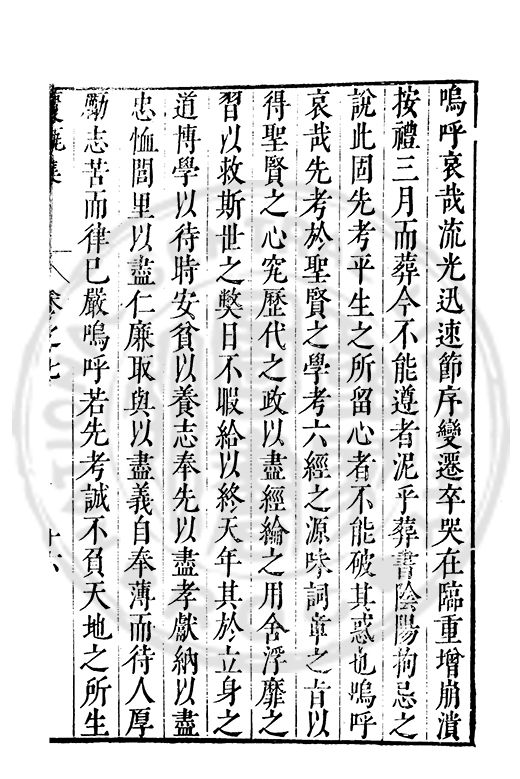 嗚呼哀哉流光迅速節序變遷卒哭在臨重增崩潰
按禮三月而葬今不能遵者泥乎葬書陰陽拘忌之
說此固先考平生之所留心者不能破其惑也嗚呼
哀哉先考於聖賢之學考六經之源味詞章之旨以
得聖賢之心究歷代之政以盡經綸之用舍浮靡之
習以救斯世之獘日不暇給以終天年其於立身之
道博學以待時安貧以養志奉先以盡孝獻納以盡
忠恤閭里以盡仁廉取與以盡義自奉薄而待人厚
勵志苦而律己嚴嗚呼若先考誠不負天地之所生
集 卷之七 十六